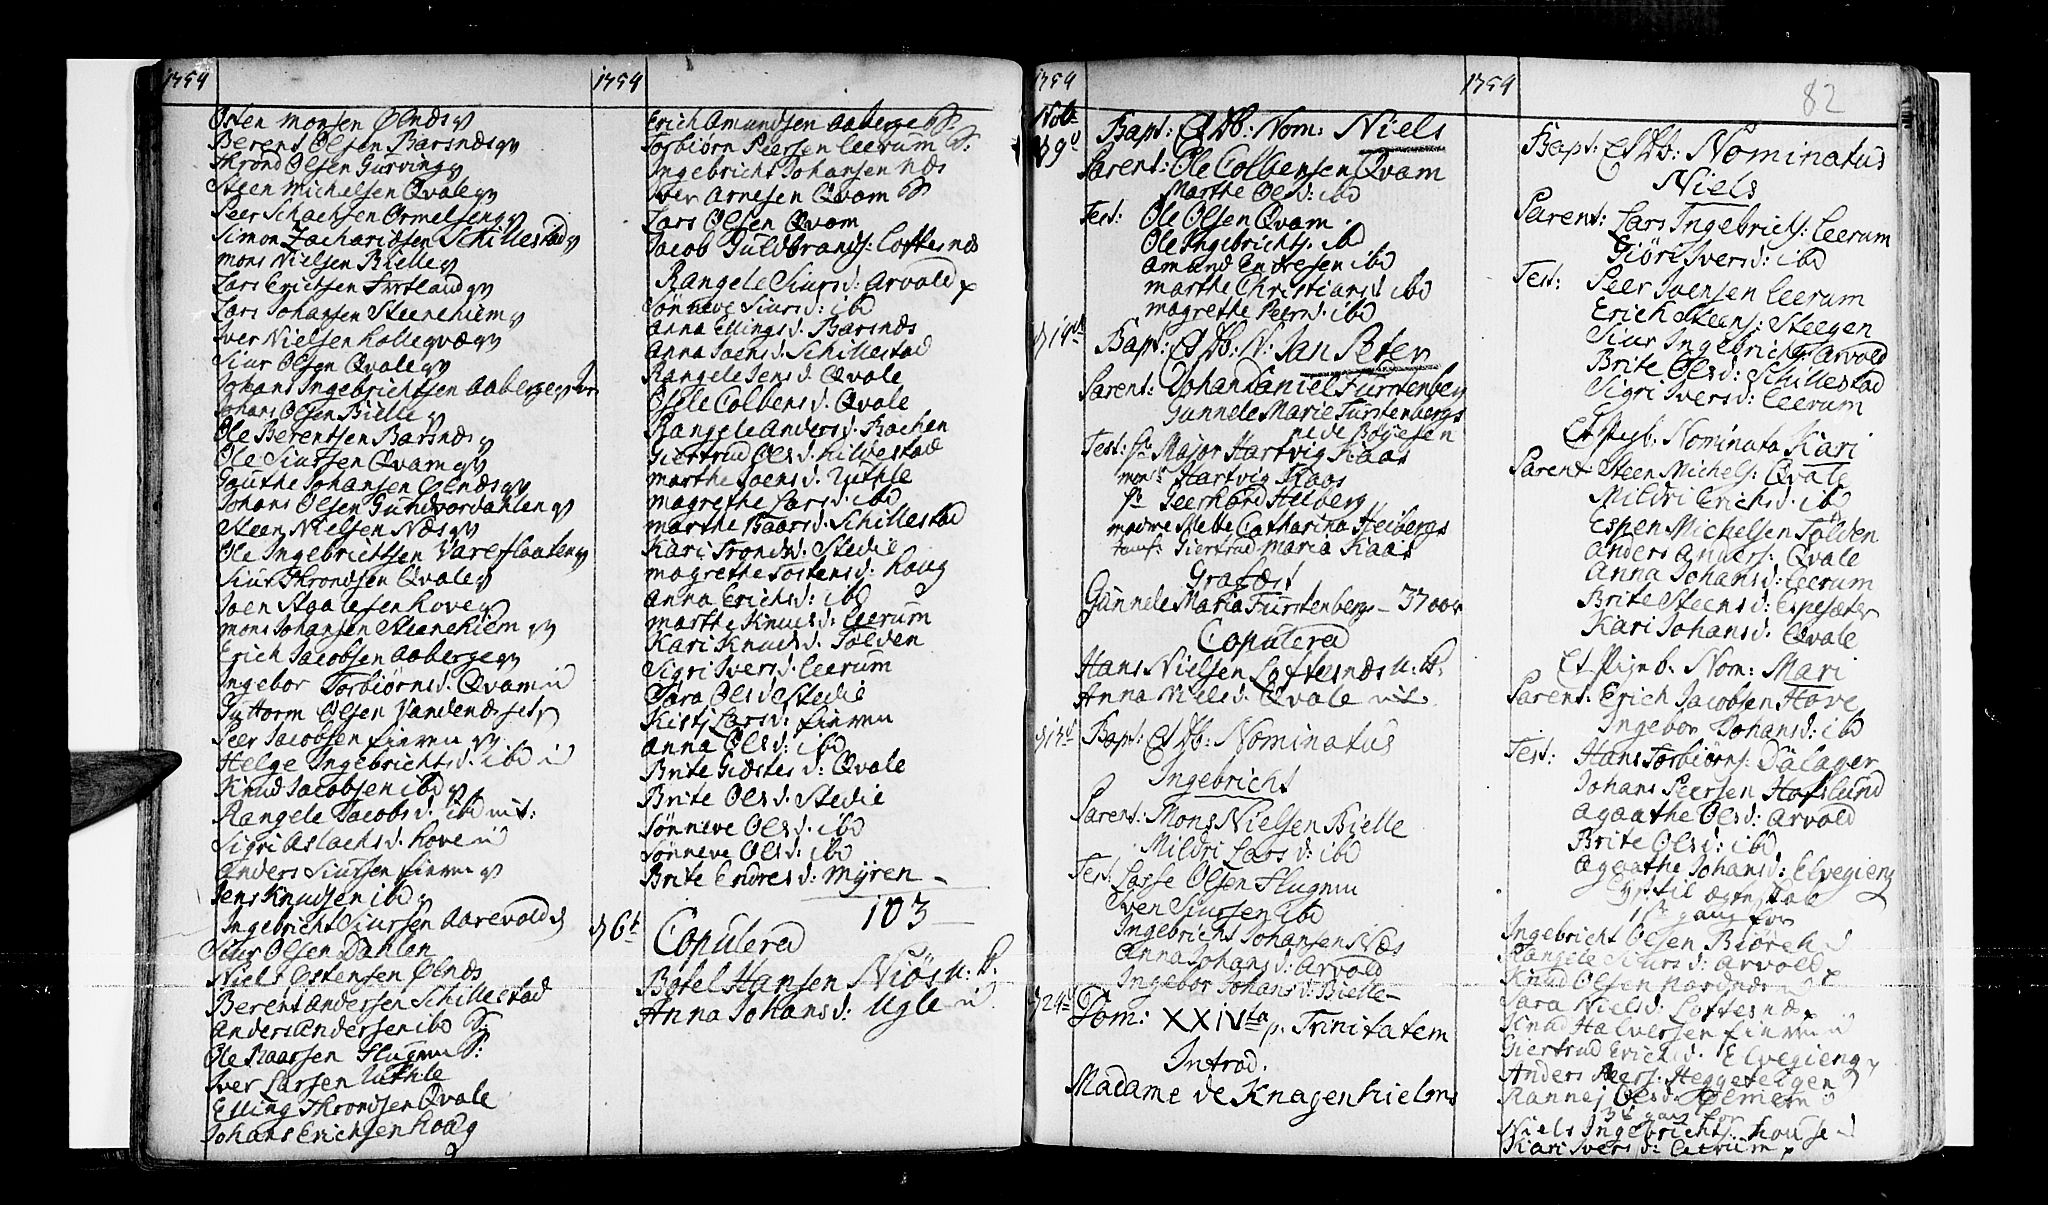 1754
Osten Monsen Ølnæs
Berent Olsen Barsnæs
Thrond Olsen Gurving
Steen Michelsen Qvale
Peer Schaksen Ormelseng
Simon Zachariasen Schillestad
Mons Nielsen Bielle
Lars Erichsen
Lars Johansen Steenehiem
Iver Nielsen
Siur Olsen Qvale
Johans Ingebrichtsen Aaberge
Johans Olsen Bielle
Ole Berentsen Barsnæs
Ole Siursen Qvam
Gauthe Johansen Ølnæs
Johans Olsen Gundvordahlen
Steen Nielsen Næs
Ole Ingebrichtsen Vareflaaten
Siur Throndsen Qvale
Joen Staalesen Hove
Mons Johansen Steenehiem
Erich Jacobsen Aaberge
Ingebor Torbiørnsd. Qvam
Guttorm Olsen
Peer Jacobsen
Helge Ingebrichtsd. ibd
Knud Jacobsen ibd
Rangele Jacobsd. ibd
Sigri Aslachsd. Hove
Anders Siursen
Jens Knudsen ibd
Ingebricht Siursen Aarevold
Siur Olsen Dahlen
Niels Ostensen Ølnæs
Berent Andersen Schillestad
Anders Andersen ibd
Ole Baarsen Flugum
Iver Larsen Uthle
Elling Throndsen Qvale
Johans Erichsen Houg
1754
Erich Amundsen Aaberge
Torbiørn Peersen Leerum
Ingebricht Johansen Næs
Iver Arnesen Qvam
Lars Olsen Qvam
Jacob Guldbrands: Loftesnæs
Rangele Siursd: Arvold
Sønneve Siursd: ibd
Anna Ellingsd. Barsnæs
Anna Joensd. Schillestad
Rangele Jensd. Qvale
Ofele Colbensd. Qvale
Rangele Andersd. Bachen
Giertrud Olsd. Kildestad
Marthe Joensd. Uthle
Magrethe Larsd. ibd
Marthe Baarsd. Schillestad
Kari Trondsd. Stedie
Magrethe Tostensd: Houg
Anna Erichsd: ibd
Marthe Knudsd: Leerum
Kari Knudsd: Tølden
Sigri Iversd. Leerum
Sara Olsd. Stedie
Kisti Larsd:
Anna Olsd: ibd
Brite Giæstesd: Qvale
Brite Olsd. Stedie
Sønneve Olsd: ibd
Sønneve Olsd: ibd
Brite Endresd: Myren
103
6t Copulered
Botel Hansen Niøs
Anna Johansd: Ugle
1754
Nobr
Bapt: Nom: Niels
Parent: Ole Colbensen Qvam
Marthe Olsd: ibd
Test: Ole Olsen Qvam
Ole Ingebrichts. ibd
Amund Endresen ibd
Marthe Christiansd ibd
Magrethe Peersd. ibd
Bapt: N: Jan Peter
Parent: Johan Daniel Fürstenberg
Gunnele Marie Fürstenbergs
Test: Major Hartvig Kaas
Mons. Hartvig Kaas
Hr Geerhard Heiberg
Madme Mette Catharina Heibergs
Giertrud Maria Kaas
Grafæst
Gunnele Maria Fürstenbergs
Copulered
Hans Nielsen Loftesnæs
Anna Nielsd. Qvale
Bapt: Nominatus
Ingebricht
Parent: Mons Nielsen Bielle
Mildri Larsd: ibd
Test Lasse Olsen Flugum
Sven Siursen ibd
Ingebricht Johansen Næs
Anna Johansd: Arvold
Ingebor Johansd: Bielle
Dom: XXIVta p. Trinitatem
Introd.
Madame de Knagenhielms
1754
82
Bapt: Nominatus
Niels
Parent: Lars Ingebrichs: Leerum
Giøre Iversd: ibd
Test: Peer Joensen Leerum
Erich Steens: Steegen
Siur Ingebrichts Arvold
Brite Olsd: Schillestad
Sigri Iversd: Leerum
Et Nominata Kari
Parent Steen Michels: Qvale
Mildri Erichsd. ibd
Espen Michelsen Tølden
Anders Anders: Qvale
Anna Johansd: Leerum
Brite Steensd: Espesæter
Kari Johansd. Qvale
Et Nom: Mari
Parent. Erich Jacobsen Hove
Ingebor Johansd: ibd
Test: Hans Torbiørns: Dalager
Johans Peersen Hafslund
Agaathe Olsd: Arvold
Brite Olsd: ibd
Agaathe Johansd: Elvegieng
til ægteskab
1ste gang for
Ingebricht Olsen
Rangele Siursd: Arvold
Knud Olsen
Sara Nielsd: Loftesnæs
Knud Halversen
Giertrud Erichsd. Elvegieng
Anders Peers. Heggestegen
Rannej Olsd.
3de gang for
Niels Ingebrichts.
Kari Iversd: Leerum